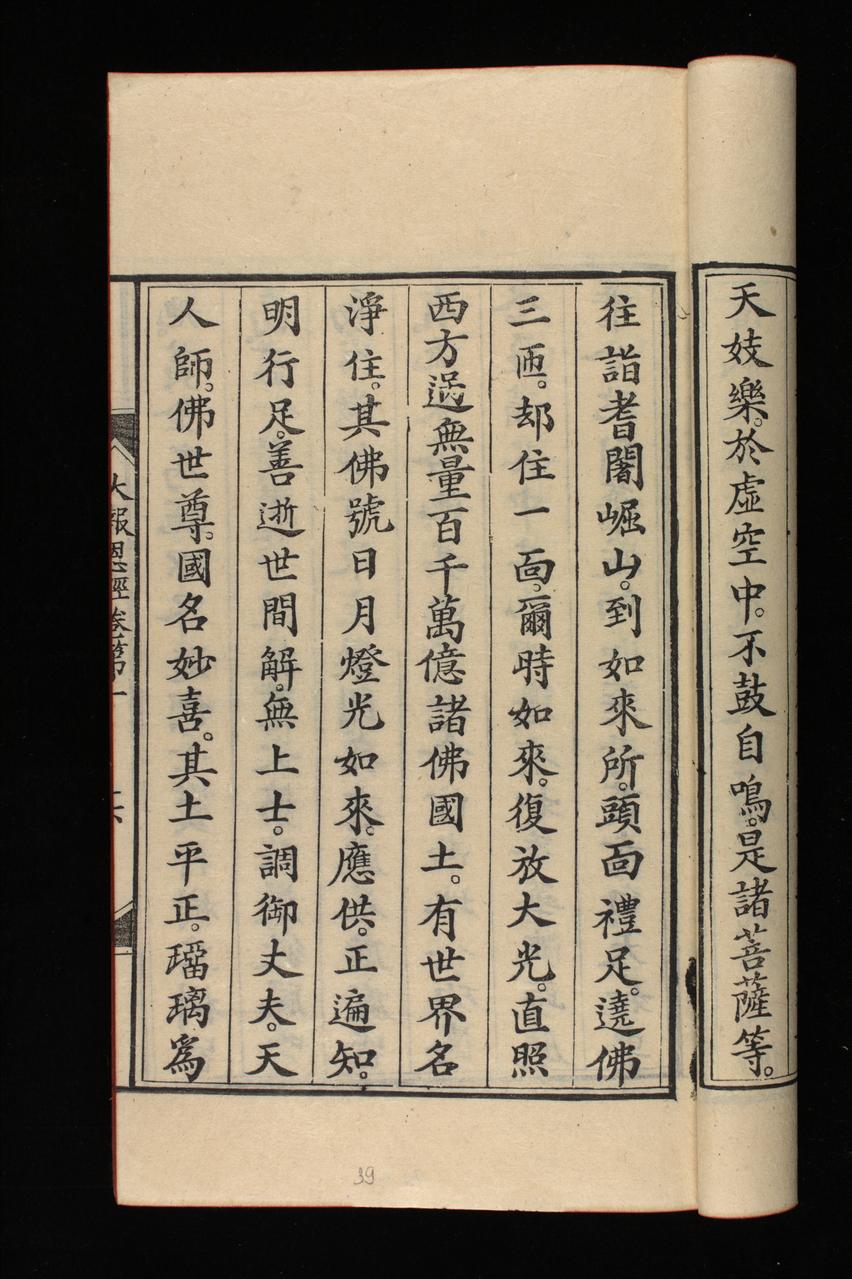 天妓樂。於虛空中。不鼓自鳴。是諸菩薩等。
往詣耆闍崛山。到如來所。頭面禮足。遶佛
三匝。却住一面。爾時如來。復放大光。直照
西方過無量百千萬億諸佛國土。有世界名
淨住。其佛號日月燈光如來。應供。正遍知。
明行足。善逝世間解。無上士。調御丈夫。天
人師。佛世尊。國名妙喜。其土平正。瑠璃為
大報恩經卷第一
39